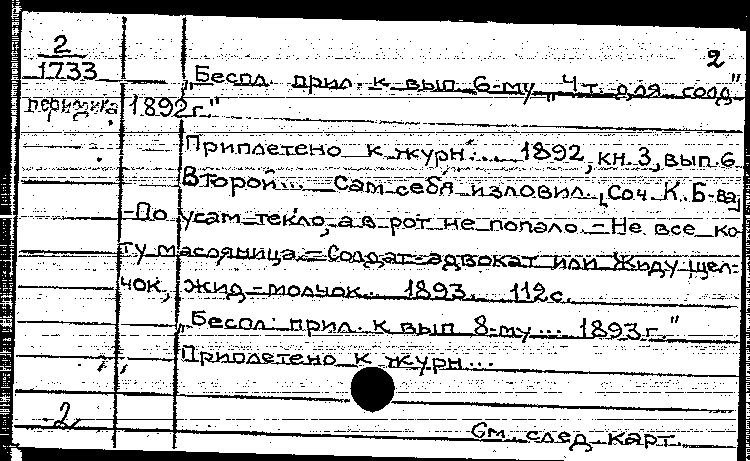 2
2
1733
„Беспл. прил. к вып. 6-му „Чт. для солд"
периодика 1892г."
Приплетено к журн.... 1892, кн. 3, вып. 6.
Второй... = Сам себя изловил. [Соч. К. Б-ва]
-По усам текло, а в рот не попало. = Не все ко-
ту масляница. = Солдат-адвокат или Жиду щел-
чок, жид - молчок. 1893. 112с.
„Беспл. прил. к вып 8-му... 1893г."
Приплетено к журн...
2
См. след. карт.